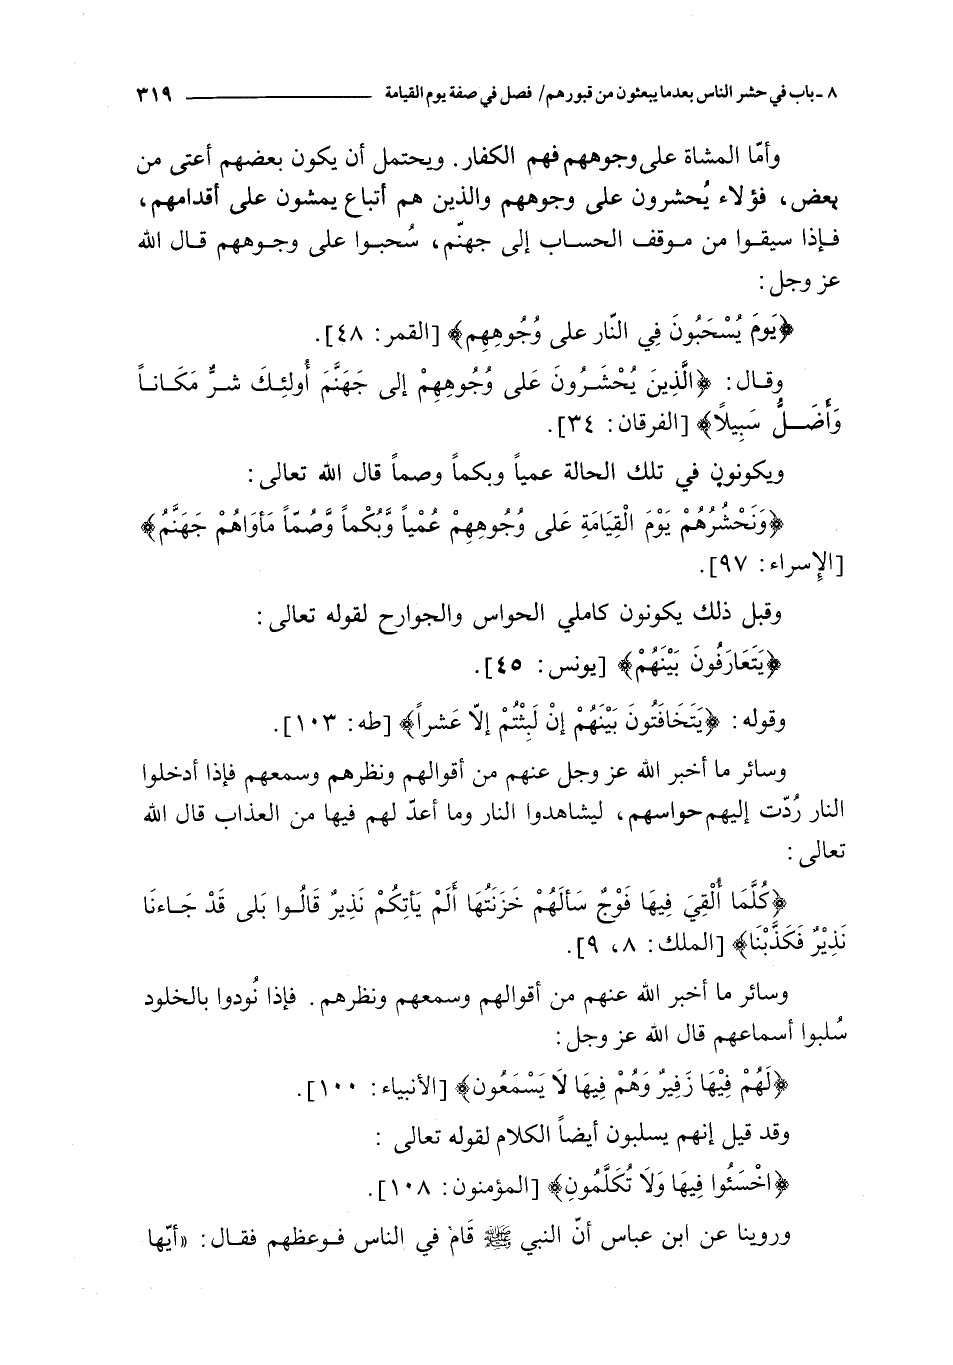 ٨ ـ باب في حشر الناس بعدما يبعثون من قبورهم/ فصل في صفة يوم القيامة ٣١٩
وأمّا المشاة على وجوههم فهم الكفار. ويحتمل أن يكون بعضهم أعتى من
بعض، فؤلاء يُحشرون على وجوههم والذين هم أتباع يمشون على أقدامهم،
فإذا سيقوا من موقف الحساب إلى جهنّم، سُحبوا على وجوههم قال الله
عز وجل:
﴿يَومَ يُسْحَبُونَ فِي النّار على وُجُوهِهِم﴾ [القمر: ٤٨].
وقال: ﴿الَّذِينَ يُحْشَرُونَ عَلى وُجُوهِهِمْ إلى جَهَنَّمَ أُولئِكَ شرٌّ مَكَاناً
وَأَضَلُّ سَبِيلاً﴾ [الفرقان: ٣٤].
ويكونون في تلك الحالة عمياً وبكماً وصماً قال الله تعالى:
﴿وَنَحْشُرُهُمْ يَوْمَ الْقِيَامَةِ عَلى وُجُوهِهِمْ عُمْياً وَّبُكْماً وَّصُمّاً مَأوَاهُمْ جَهَنَّمُ﴾
[الإسراء: ٩٧].
وقبل ذلك يكونون كاملي الحواس والجوارح لقوله تعالى:
﴿يَتَعَارَفُونَ بَيْنَهُمْ﴾ [يونس: ٤٥].
وقوله: ﴿يَتَخَافَتُونَ بَيْنَهُمْ إنْ لَبِثْتُمْ إلاّ عَشراً﴾ [طه: ١٠٣].
وسائر ما أخبر الله عز وجل عنهم من أقوالهم ونظرهم وسمعهم فإذا أدخلوا
النار رُدّت إليهم حواسهم، ليشاهدوا النار وما أعدّ لهم فيها من العذاب قال الله
تعالى:
﴿كُلَّمَا أُلْقِيَ فِيهَا فَوْجٌ سَألَهُمْ خَزَنَتُهَا أَلَمْ يَأتِكُمْ نَذِيرٌ قَالُوا بَلى قَدْ جَاءنَا
نَذِيْرٌ فَكَذَّبْنَا﴾ [الملك: ٨، ٩].
وسائر ما أخبر الله عنهم من أقوالهم وسمعهم ونظرهم. فإذا نُودوا بالخلود
سُلبوا أسماعهم قال الله عز وجل:
﴿لَهُمْ فِيْهَا زَفِيرٌ وَهُمْ فِيهَا لَا يَسْمَعُون﴾ [الأنبياء: ١٠٠].
وقد قيل إنهم يسلبون أيضاً الكلام لقوله تعالى :
﴿اخْسَئُوا فِيهَا وَلَا تُكَلَّمُونِ﴾ [المؤمنون: ١٠٨].
وروينا عن ابن عباس أنّ النبي ﷺ قَامَ في الناس فوعظهم فقال: «أيّها